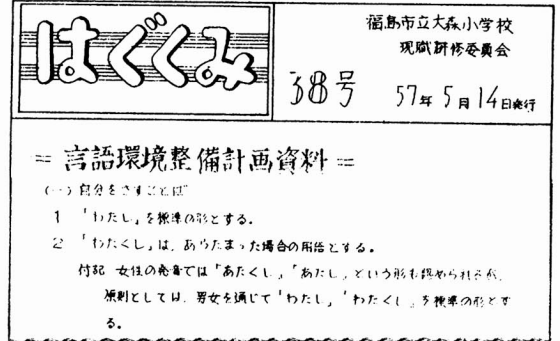 はぐくみ
福島市立大森小学校
現職研修委員会
38号 57年5月14日発行
＝言語環境整備計画資料＝
(一) 自分をさすことば
1 「わたし」を標準の形とする。
2 「わたくし」は、あらたまった場合の用語とする。
付記 女性の発音では「あたくし」、「あたし」という形も認められるが、
原則としては、男女を通じて「わたし」「わたくし」を標準の形とす
る。